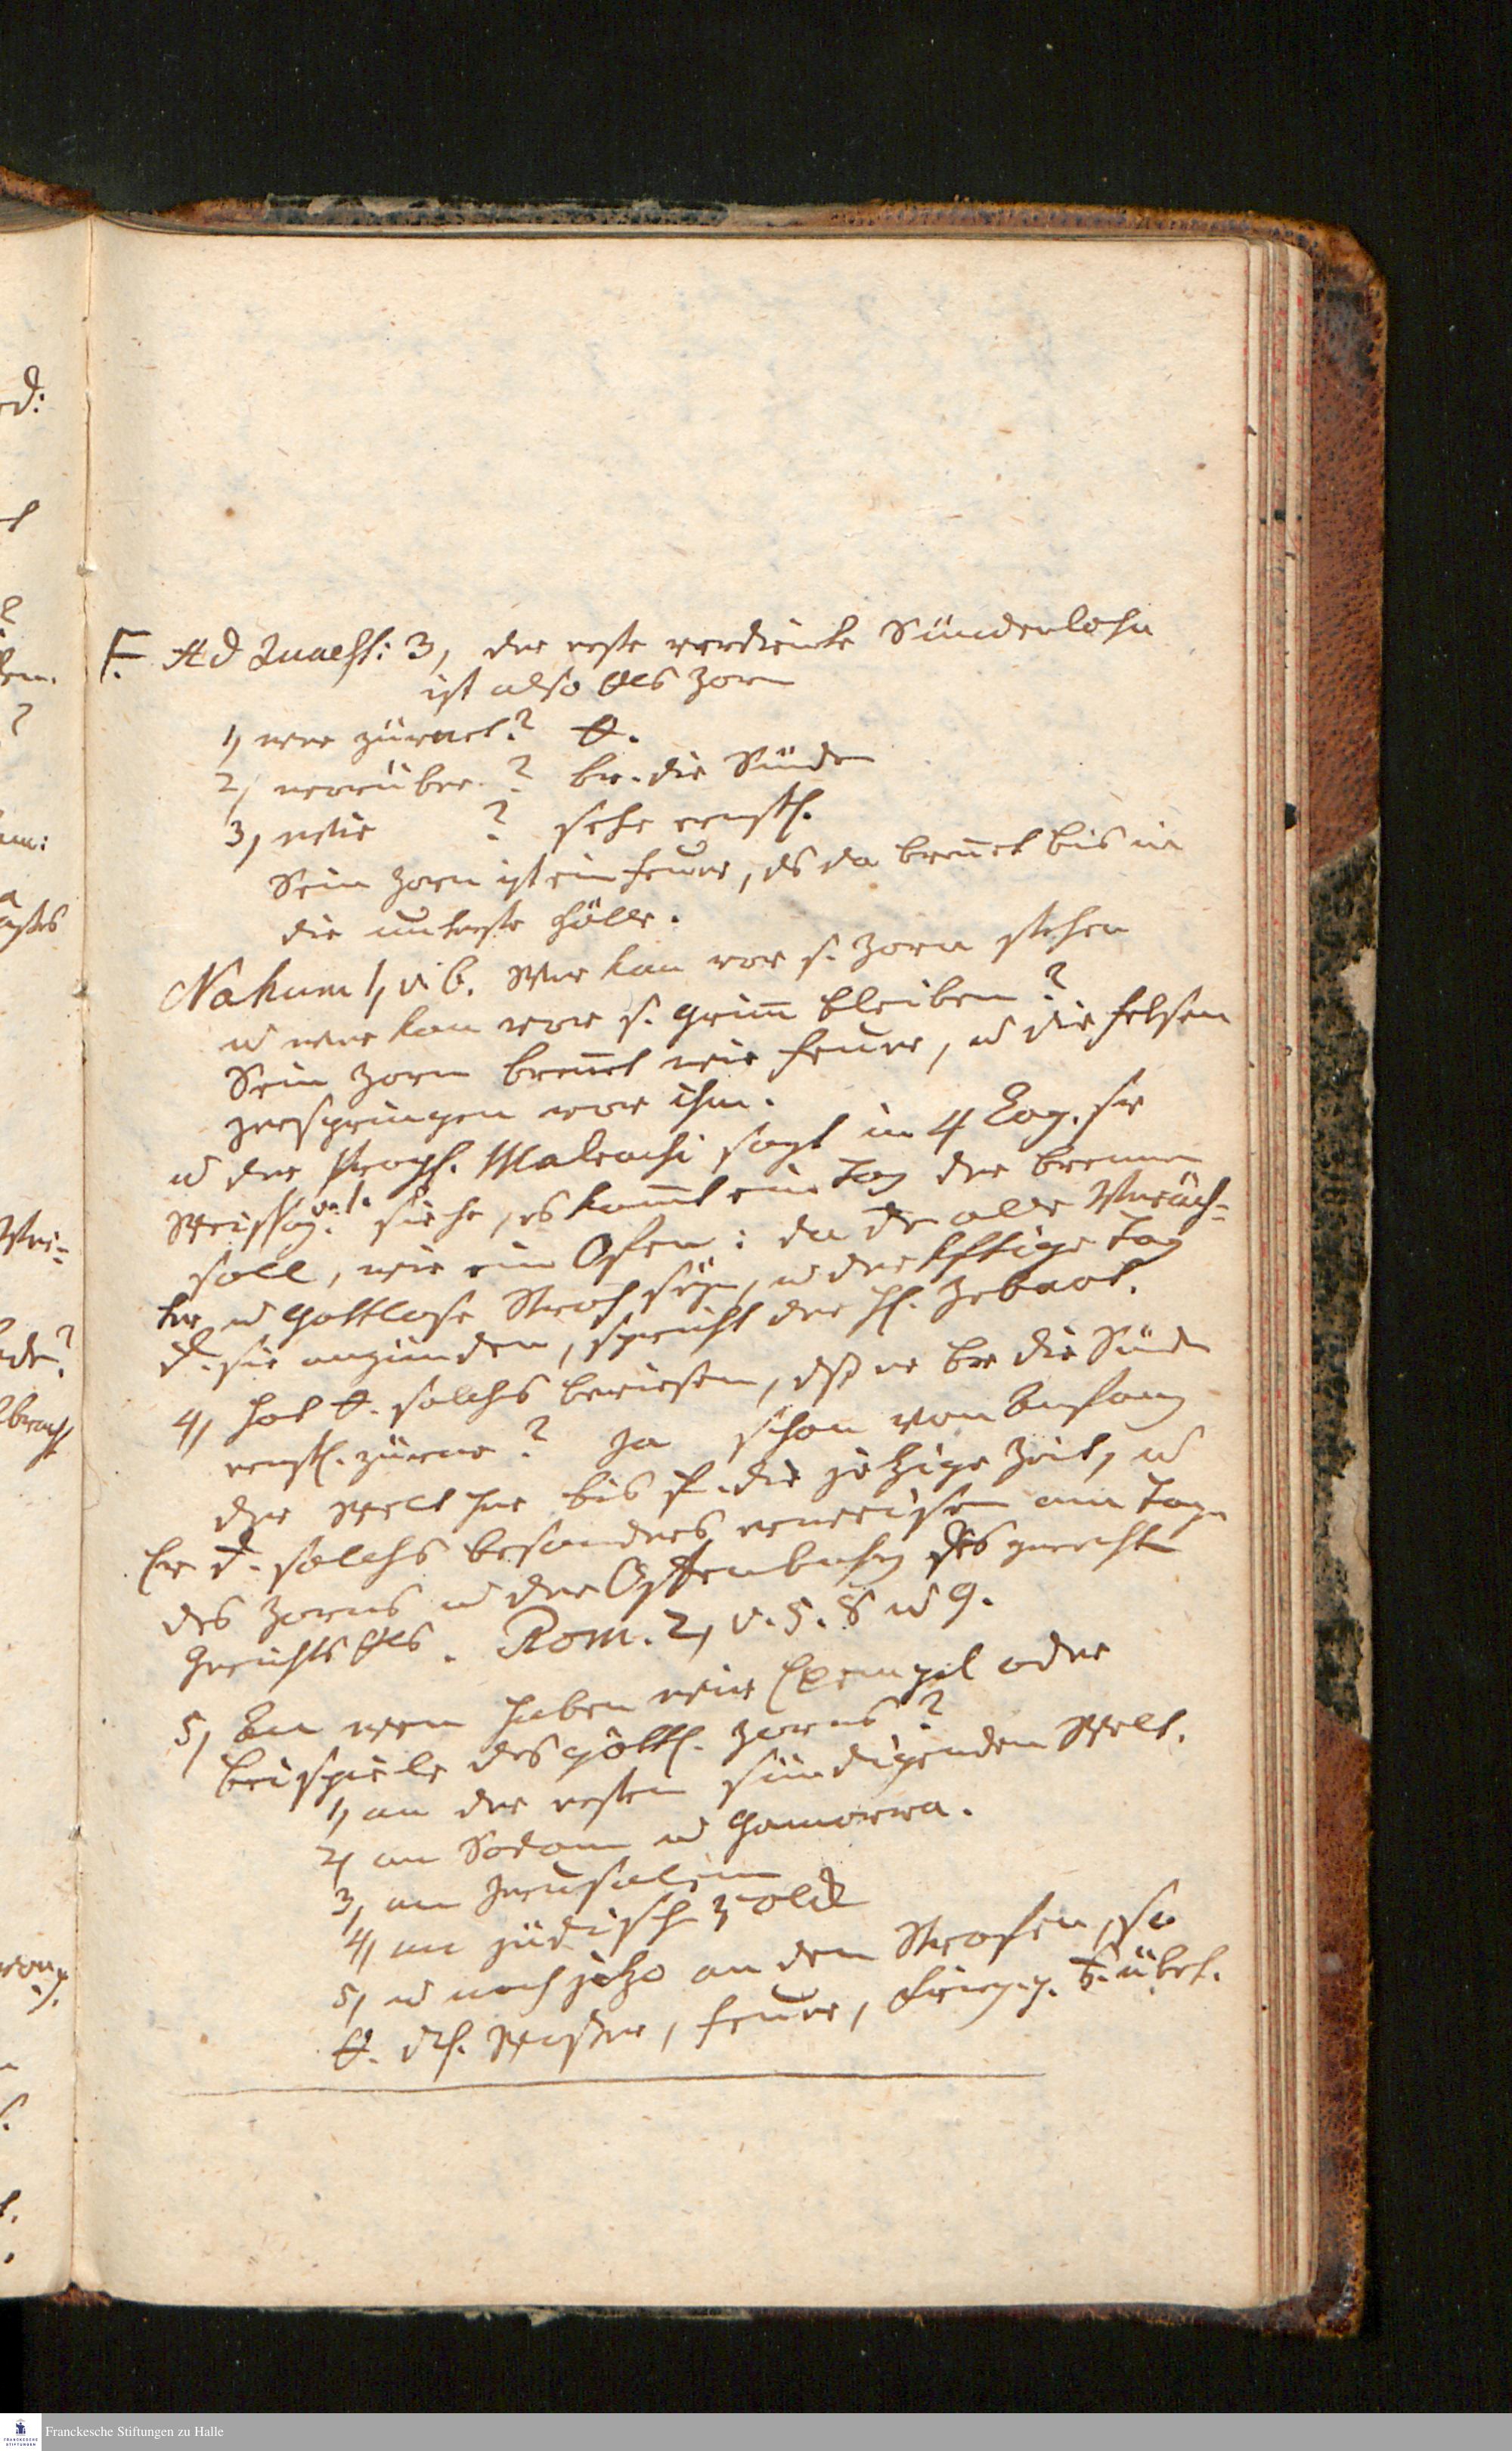 F. Ad Quaest: 3, der erste verdiente Sündenlohn
ist also Gottes Zorn
1, wer zürnet? G.
2, worüber? üb. die Sünde
3, wie ? sehr ernstl.
Sein Zorn ist ein Feuer, ds da breñet bis in
die unterste Hölle.
Nahum 1, v. 6. Wer kan vor s. Zorn stehen
u wer kan vor s. Grim̄ bleiben?
Sein Zorn breñet wie Feuer, u die Felsen
zerspringen vor ihm.
u der Proph. Maleachi sagt im 4 Cap. sr
Weissag. v. 1. siehe, es kom̄t ein Tag der brennen
soll, wie ein Ofen: da alle Veräch-
ter u Gottlose Stroh seyn, u der kftige Tag
d. sie anzünden, spricht der H. Zebaot.
4, hat G. solches bewiesen, dß er üb die Sünde
ernstl. zürne? Ja schon von Anfang
der Welt her bis f. die jetzige Zeit, u
Er d. solches besonders erweisen am Tage
des Zorns u der Offenbahrg des gerechten
Gerichts Gottes. Rom. 2, v. 5. 8 u 9.
5, An wem haben wir Exempel oder
Beispiele des göttl. Zorns?
1, an der ersten sündigenden Welt.
2, an Sodom u Gomorra.
3, an Jerusalem
4, am jüdisch Volck
5, u noch jetzo an den Strafen, so
G. dch. Wasser, Feuer, Krieg p. p.
Franckesche Stiftungen zu Halle